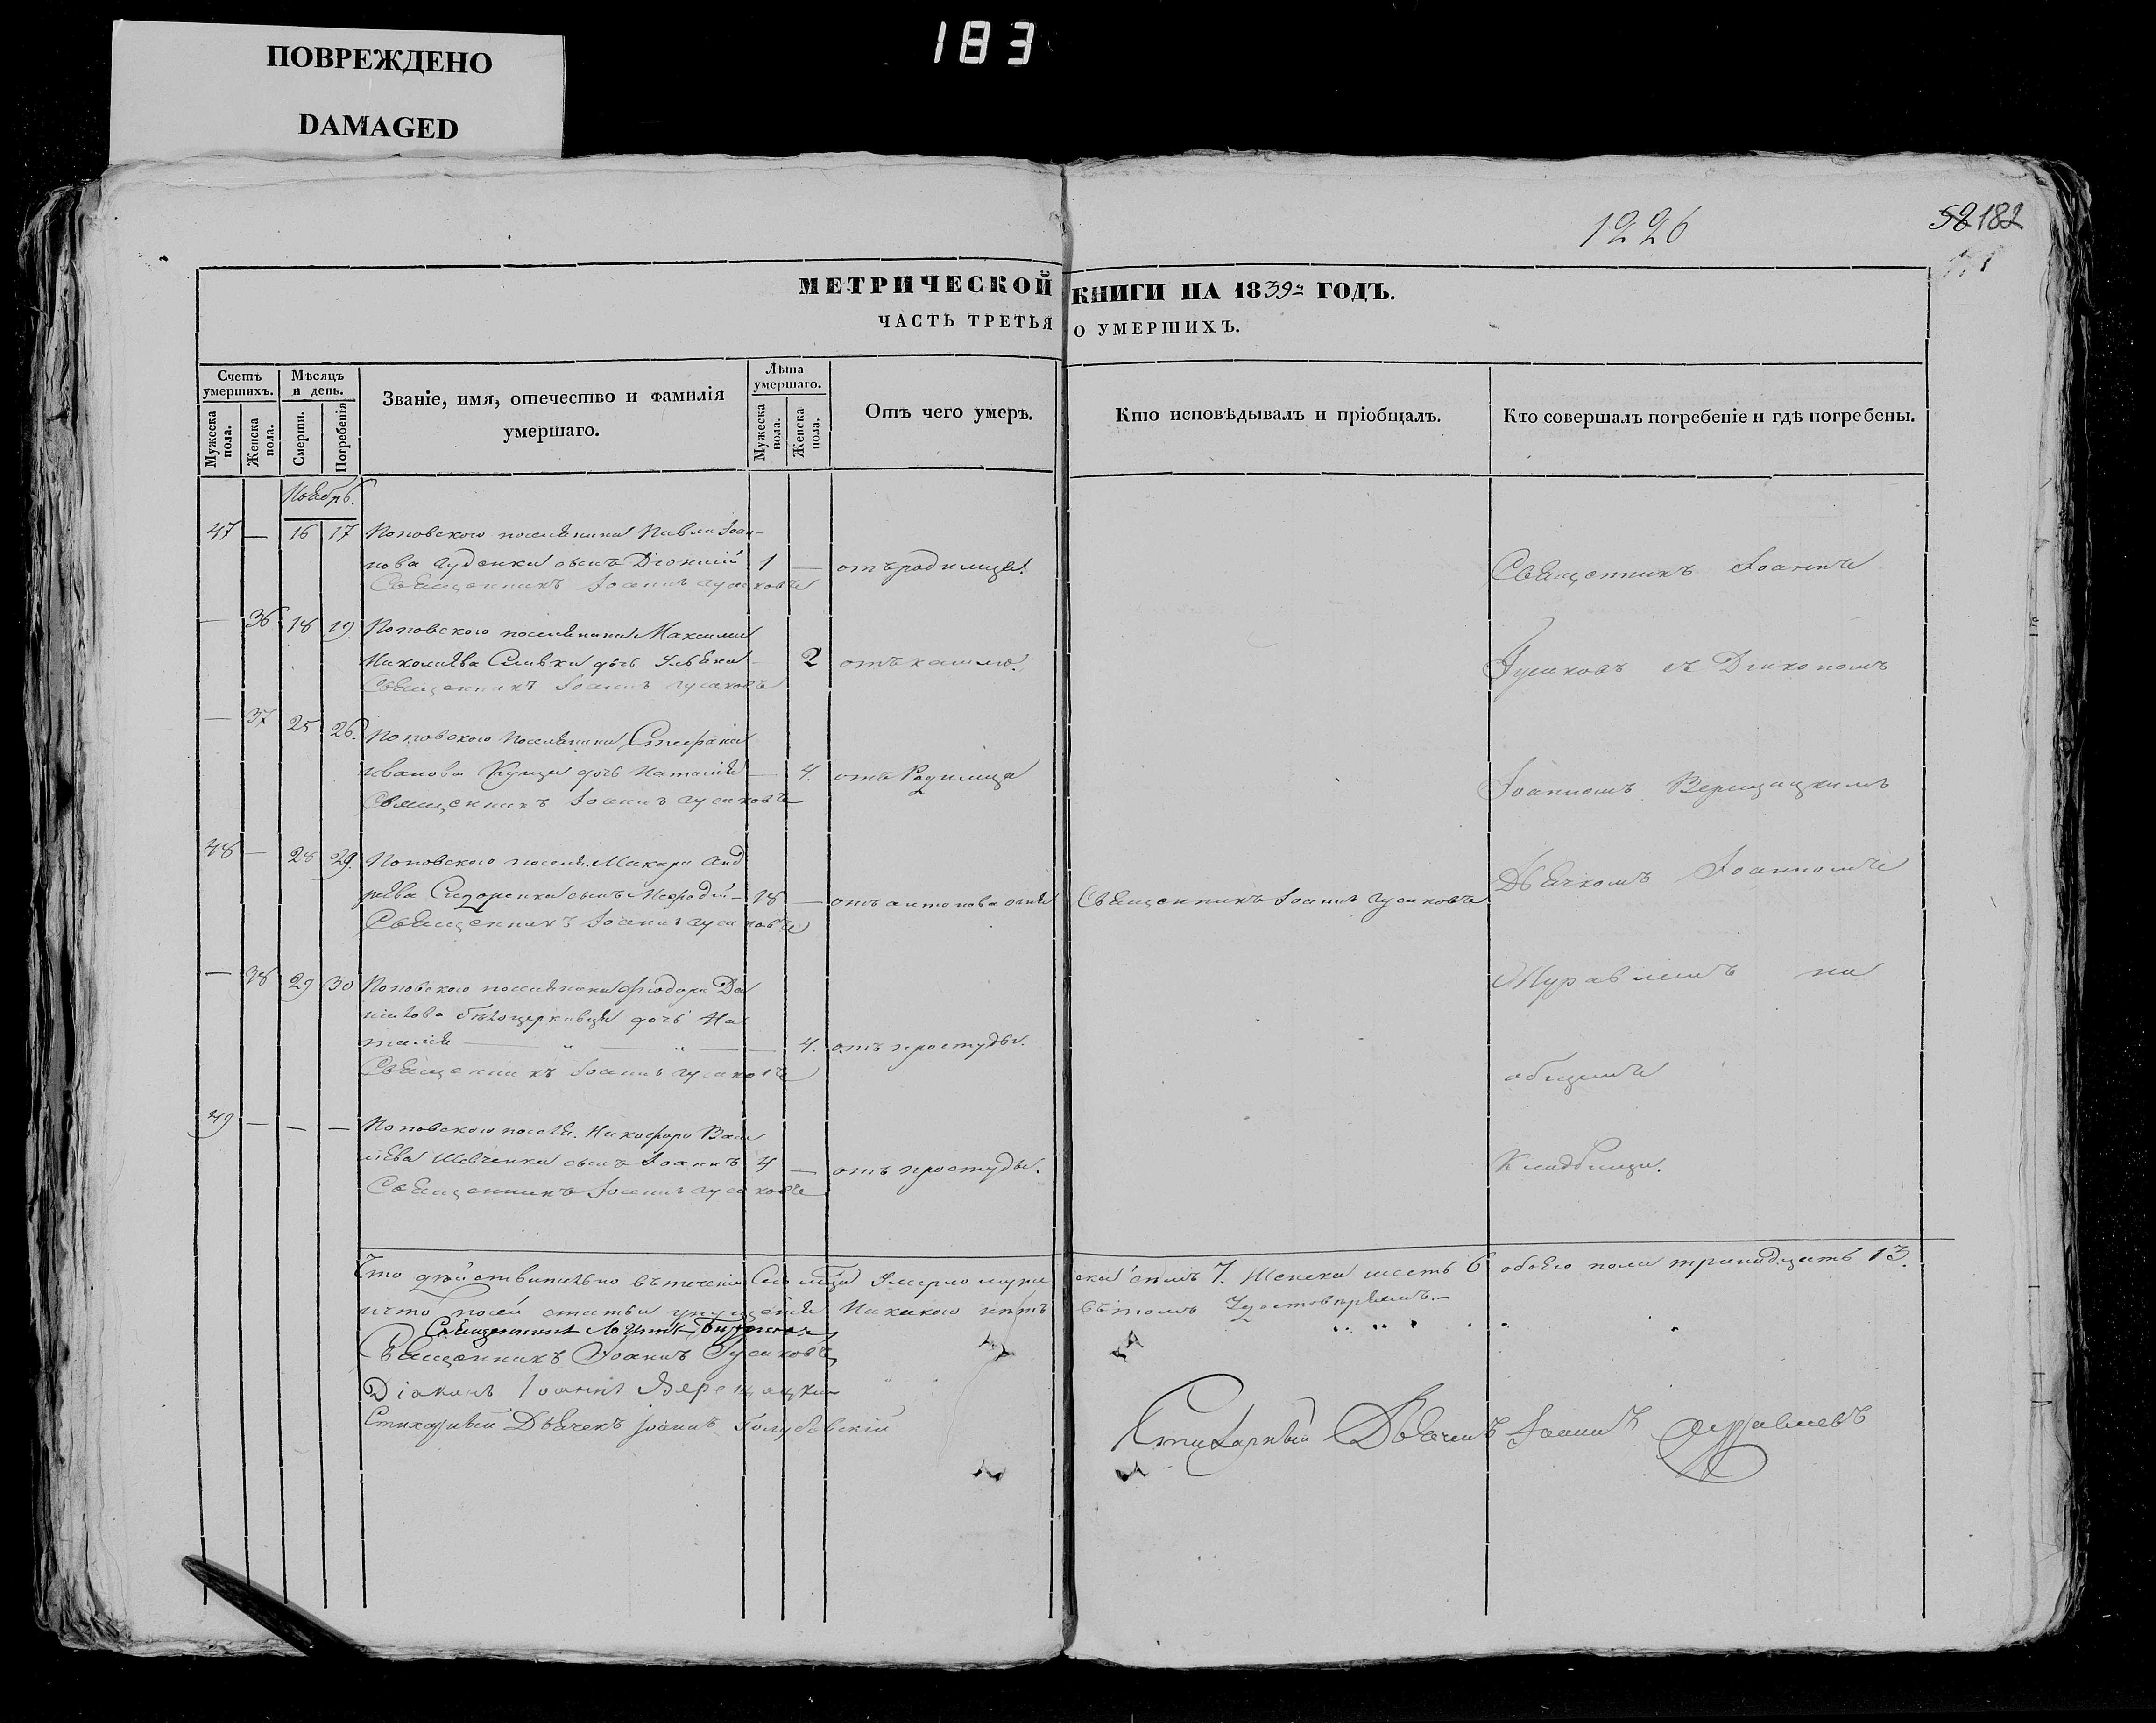 ПОВРЕЖДЕНО
DAMAGED
183
1226
52 182
МЕТРИЧЕСКОЙ КНИГИ НА 1839й ГОДЪ.
ЧАСТЬ ТРЕТЬЯ О УМЕРШИХЪ.
Счетъ умершихъ.
Мужеска пола.
Женска пола.
Мѣсяцъ и день.
Смерти.
Погребенія
Званіе, имя, отечество и фамилія умершаго.
Лѣта умершаго.
Мужеска пола.
Женска пола.
Отъ чего умеръ.
Кто исповѣдывалъ и пріобщалъ.
Кто совершалъ погребеніе и гдѣ погребены.
Ноябрь.
47 — 16 17 Поповского поселянина Павла Іоан-
нова сынъ Діонисій 1 — отъ родимца.
Священникъ Іоаннъ Гусаковъ
— 36 18 19. Поповского поселянина Максима
Николаева Сливки дочь 2 отъ кашлю.
Священникъ Іоаннъ Гусаковъ
— 37 25 26. Поповского поселянина Стефана
Иванова Куцая дочь Наталія — 4. отъ Родимца
Священникъ Іоаннъ Гусаковъ
48 — 28 29. Поповского поселя. Макара Анд
реева Сидоренка сынъ Мефодій — 18 — отъ антонова огня Священникъ Іоаннъ Гусаковъ
Священникъ Іоаннъ Гусаковъ
— 38 29 30 Поповского поселянина Фіодора Да
ніилова Бѣлоцерковца дочь На
талія — „ — „ — 4. отъ простуды.
Священникъ Іоаннъ Гусаковъ
49 — — — Поповского поселя. Никофора Васи
ліева Шевченка сынъ Іоаннъ 4 — отъ простуды.
Священникъ Іоаннъ Гусаковъ
Священникъ Іоаннъ
Гусаковъ съ Диакономъ
Іоанномъ Верещацкимъ
Дьячкомъ Іоанномъ
Журавлемъ на
общемъ
Кладбищи.
Что дѣйствительно въ теченіи сего мѣсяца умерло муже ска семь 7. Женска шесть 6 обоего пола тринадцать 13.
и что по сей статьи упущенія никакого нѣтъ въ томъ удостовѣряемъ.—
Священникъ
Священникъ Іоаннъ Гусаковъ
Діаконъ Іоаннъ Верещацкий
Стихарный Дьячекъ Іоаннъ Голубовскій
Стихарный Дьячекъ Іоаннъ Журавлевъ